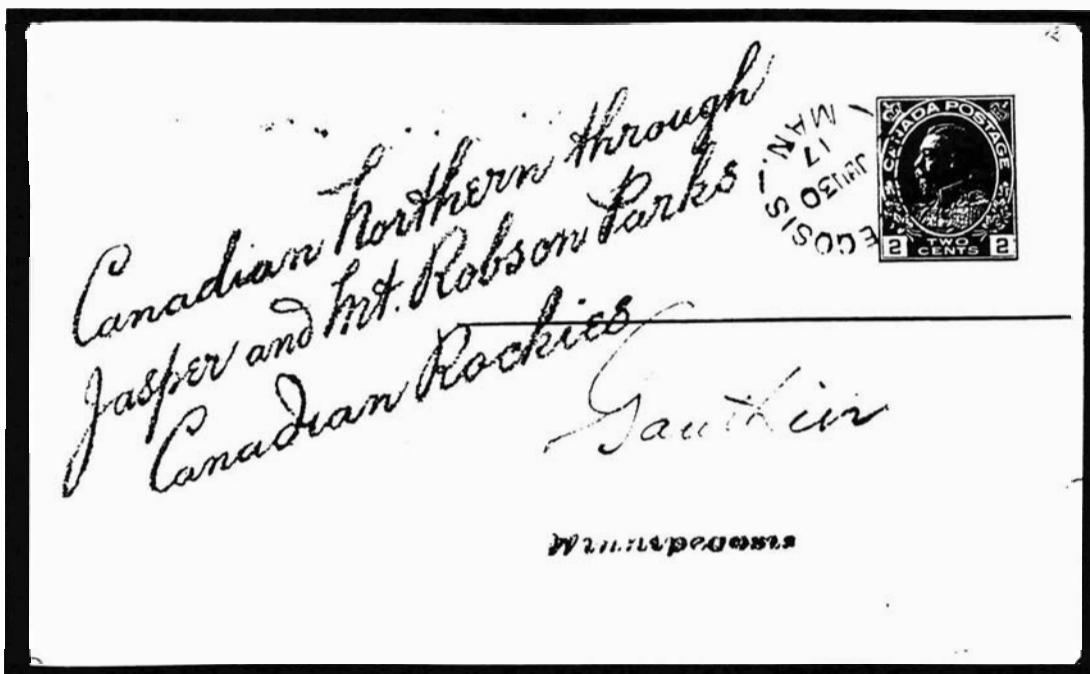 Canadian Northern through
Jasper and Mt. Robson Parks
Canadian Rockies
EGOSIS MAN.
JUN 30
17
CANADA POSTAGE
2 TWO CENTS 2
Gauthier
Winnipegosis